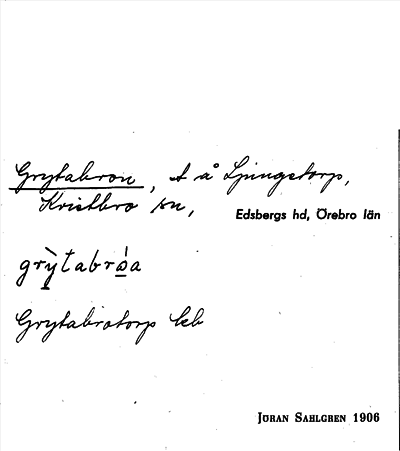 Grytabron, t å Ljungstorp,
Kvistbro sn,
Edsbergs hd, Örebro län
grỳtabrǫ́a
Grytabrotorp kb
JÖRAN SAHLGREN 1906